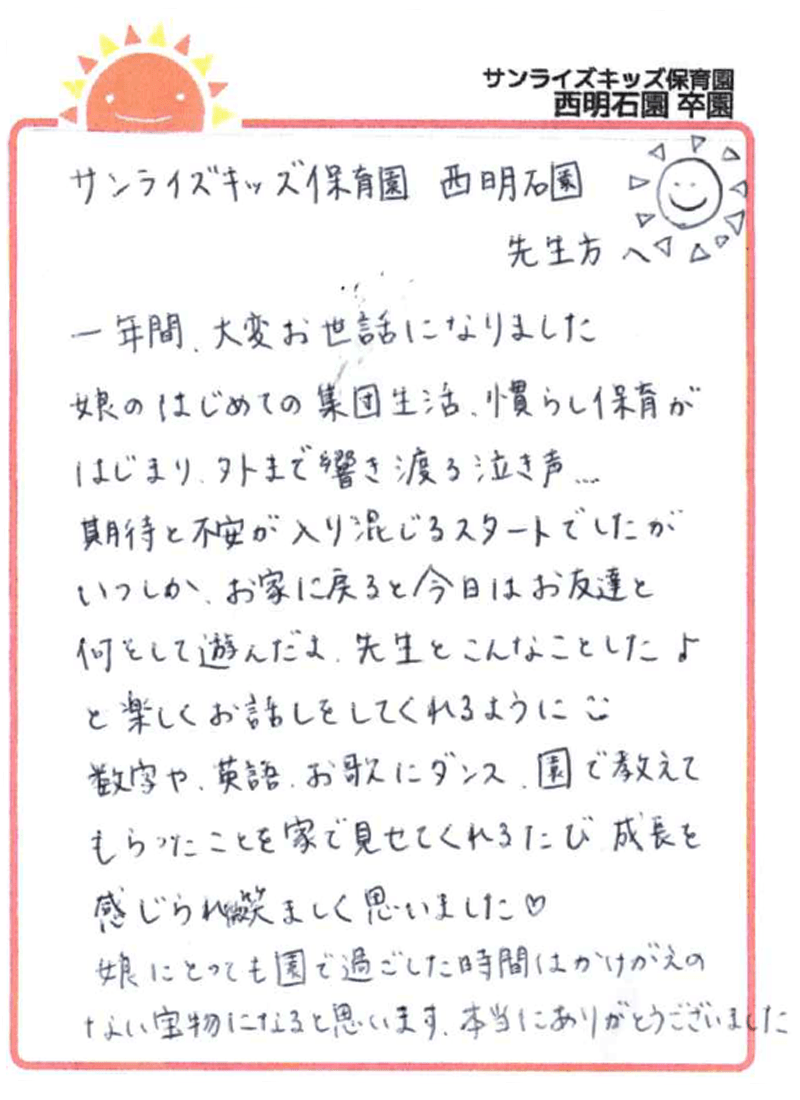 サンライズキッズ保育園
西明石園 卒園
サンライズキッズ保育園 西明石園
先生方へ
一年間、大変お世話になりました
娘のはじめての集団生活、慣らし保育が
はじまり、外まで響き渡る泣き声…
期待と不安が入り混じるスタートでしたが
いつしか、お家に戻ると今日はお友達と
何をして遊んだよ、先生とこんなことしたよ
と楽しくお話しをしてくれるように
数字や、英語、お歌にダンス、園で教えて
もらったことを家で見せてくれるたび 成長を
感じられ微笑ましく思いました♡
娘にとっても園で過ごした時間はかけがえの
ない宝物になると思います、本当にありがとうございました